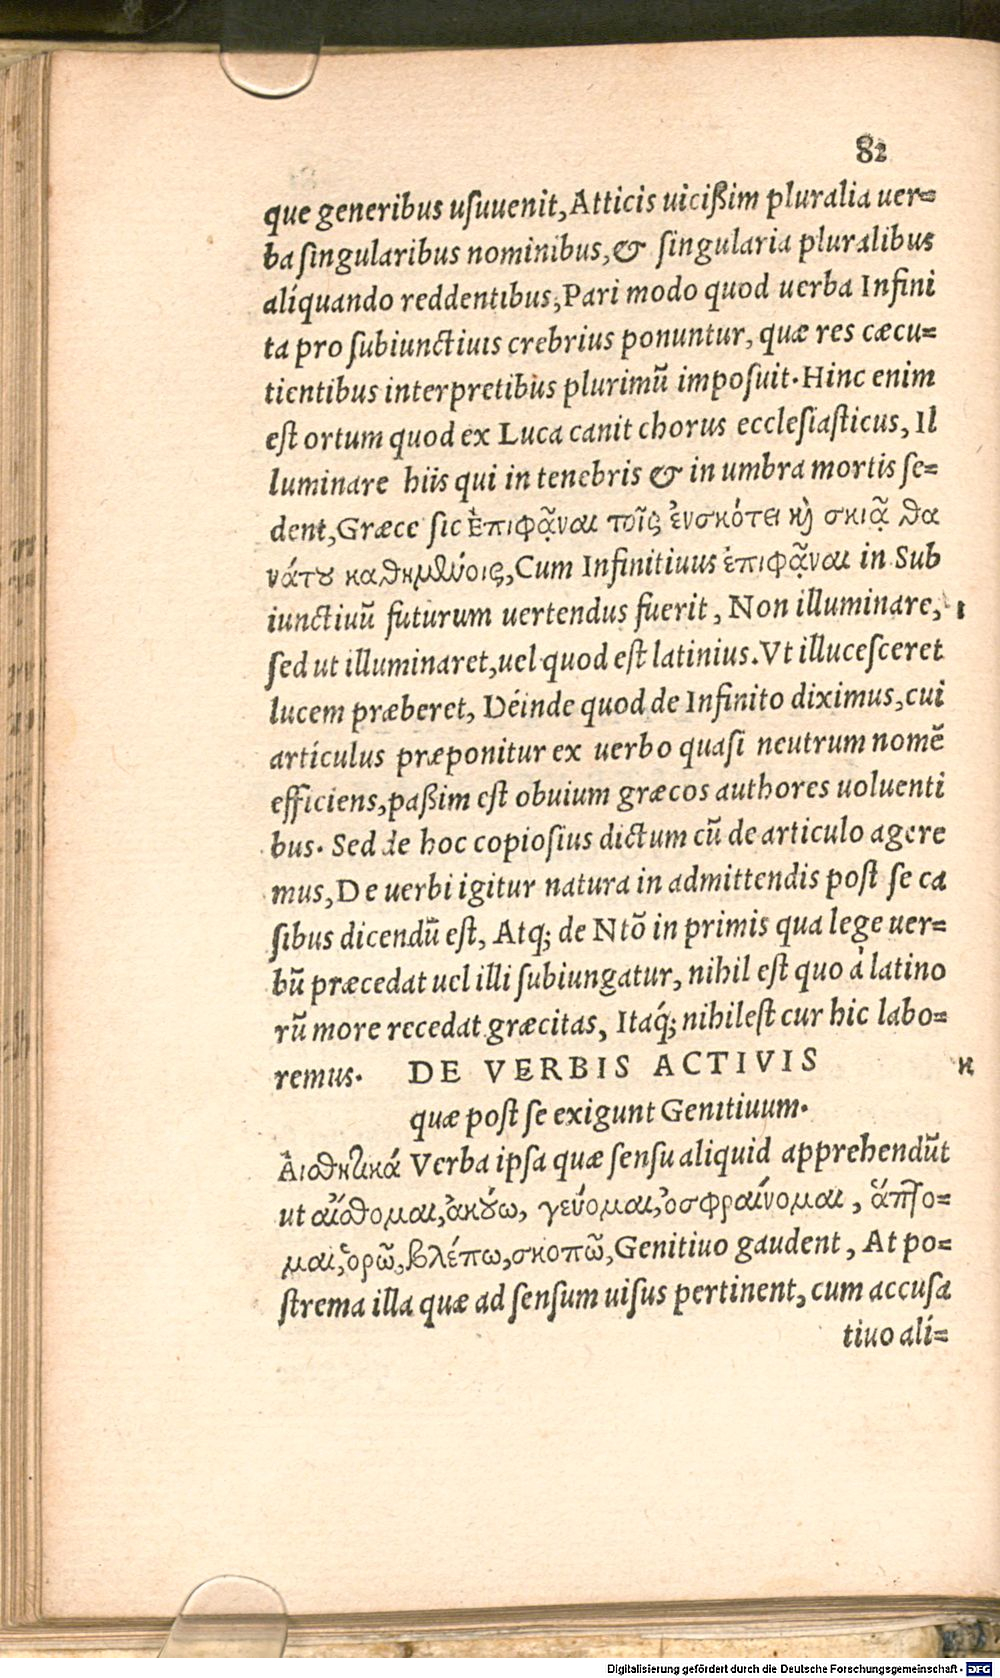 82
que generibus usuuenit, Atticis uicißim pluralia uer=
ba singularibus nominibus, & singularia pluralibus
aliquando reddentibus, Pari modo quod uerba Infini
ta pro subiunctiuis crebrius ponuntur, quæ res cæcu=
tientibus interpretibus plurimũ imposuit. Hinc enim
est ortum quod ex Luca canit chorus ecclesiasticus, Il
luminare hiis qui in tenebris & in umbra mortis se=
dent, Græce sic Ἐπιφᾶναι τοῖς ἐνσκότει καὶ σκιᾷ θα
νάτου καθημένοις, Cum Infinitiuus ἐπιφᾶναι in Sub
iunctiuũ futurum uertendus fuerit, Non illuminare,
sed ut illuminaret, uel quod est latinius. Vt illucesceret
lucem præberet, Déinde quod de Infinito diximus, cui
articulus præponitur ex uerbo quasi neutrum nomẽ
efficiens, paßim est obuium græcos authores uoluenti
bus. Sed de hoc copiosius dictum cũ de articulo agere
mus, De uerbi igitur natura in admittendis post se ca
sibus dicendũ est, Atq; de Ntõ in primis qua lege uer=
bũ præcedat uel illi subiungatur, nihil est quo à latino
rũ more recedat græcitas, Itaq́; nihilest cur hic labo=
remus. DE VERBIS ACTIVIS
quæ post se exigunt Genitiuum.
Ἀισθητικά Verba ipsa quæ sensu aliquid apprehendũt
ut αἴσθομαι, ἀκούω, γεύομαι, ὀσφραίνομαι, ἅπτο=
μαι, ὁρῶ, βλέπω, σκοπῶ, Genitiuo gaudent, At po=
strema illa quæ ad sensum uisus pertinent, cum accusa
tiuo ali=
Digitalisierung gefördert durch die Deutsche Forschungsgemeinschaft - DFG